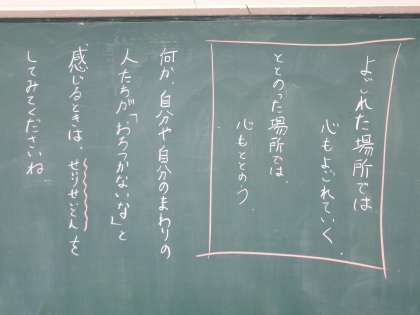 よごれた場所では
心もよごれていく。
ととのった場所では、
心もととのう。
何か、自分や自分のまわりの
人たちが、「おちつかないな」と
感じるときは、せいりせいとんを
してみてくださいね